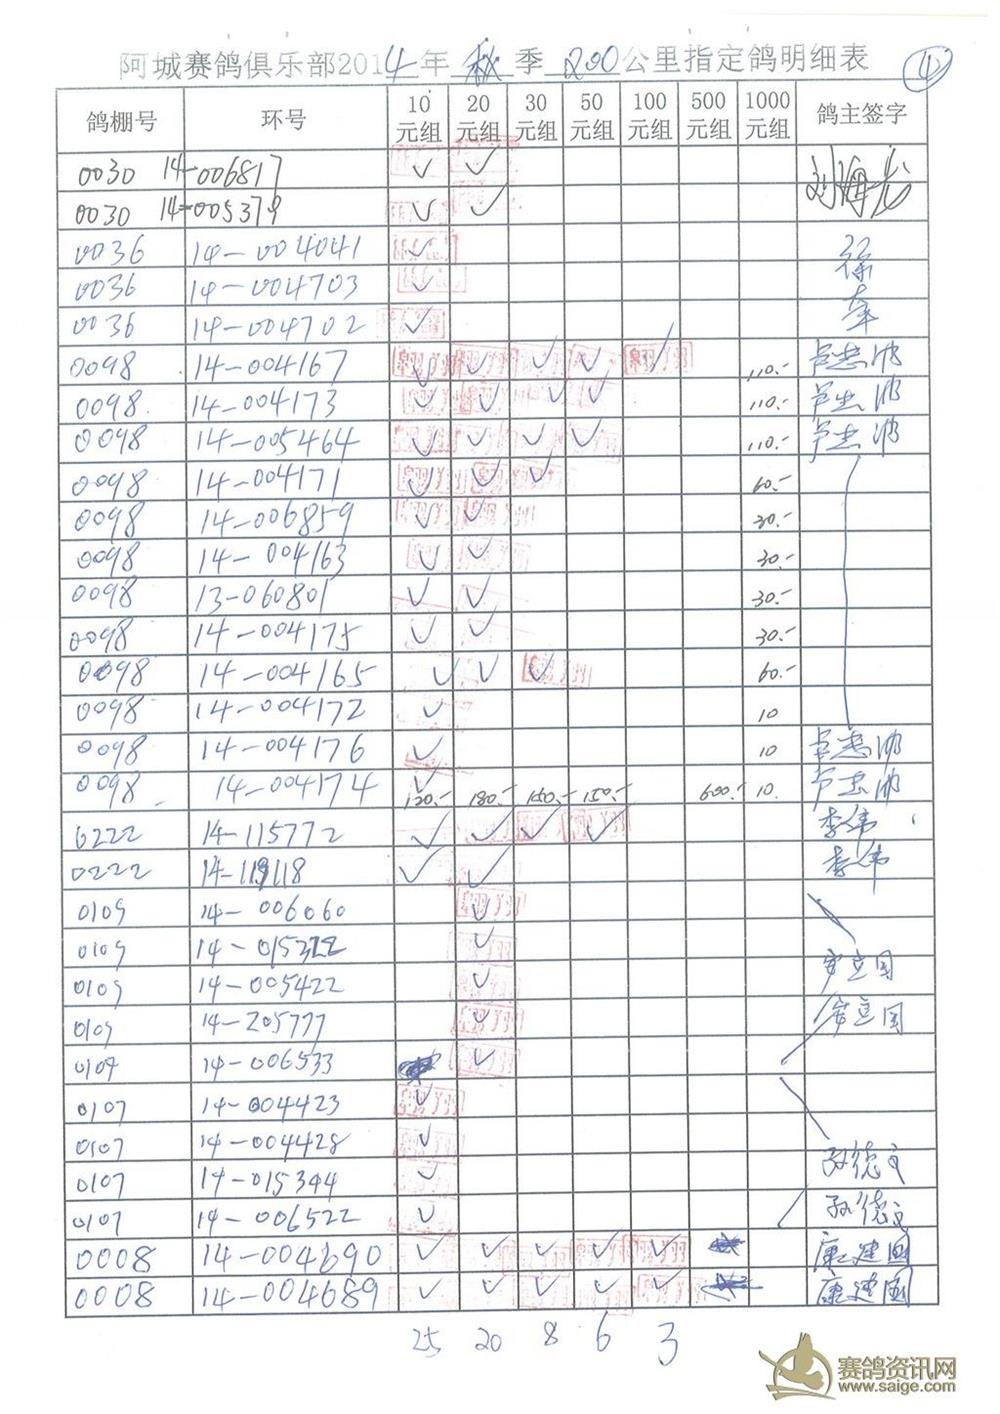 阿城赛鸽俱乐部2014年 秋 季 200公里指定鸽明细表
④
鸽棚号 环号 10元组 20元组 30元组 50元组 100元组 500元组 1000元组 鸽主签字
0030 14-006817 ✓ ✓
0030 14-005379 ✓ ✓
0036 14-004041 ✓
0036 14-004703 ✓
0036 14-004702 ✓
0098 14-004167 ✓ ✓ ✓ ✓ ✓ 110.- 卢志波
0098 14-004173 ✓ ✓ ✓ ✓ 110.- 卢志波
0098 14-005464 ✓ ✓ ✓ ✓ 110.- 卢志波
0098 14-004171 ✓ ✓ ✓ 60.-
0098 14-006859 ✓ ✓ 30.-
0098 14-004163 ✓ ✓ 30.-
0098 13-060801 ✓ ✓ 30.-
0098 14-004175 ✓ ✓ 30.-
0098 14-004165 ✓ ✓ ✓ 60.-
0098 14-004172 ✓ 10
0098 14-004176 ✓ 10 卢志波
0098 14-004174 ✓ 120.- 180.- 150.- 150.- 600.- 10. 卢志波
0222 14-115772 ✓ ✓ ✓ ✓ 李伟
0222 14-119118 ✓ ✓ 李伟
0109 14-006060 ✓
0109 14-015322 ✓
0109 14-005422 ✓ 安立国
0109 14-205777 ✓ 安立国
0109 14-006533 ✓
0107 14-004423 ✓
0107 14-004428 ✓
0107 14-015344 ✓ 孙德文
0107 14-006522 ✓ 孙德文
0008 14-004690 ✓ ✓ ✓ ✓ ✓ 康建国
0008 14-004689 ✓ ✓ ✓ ✓ ✓ 康建国
25 20 8 6 3
赛鸽资讯网
www.saige.com